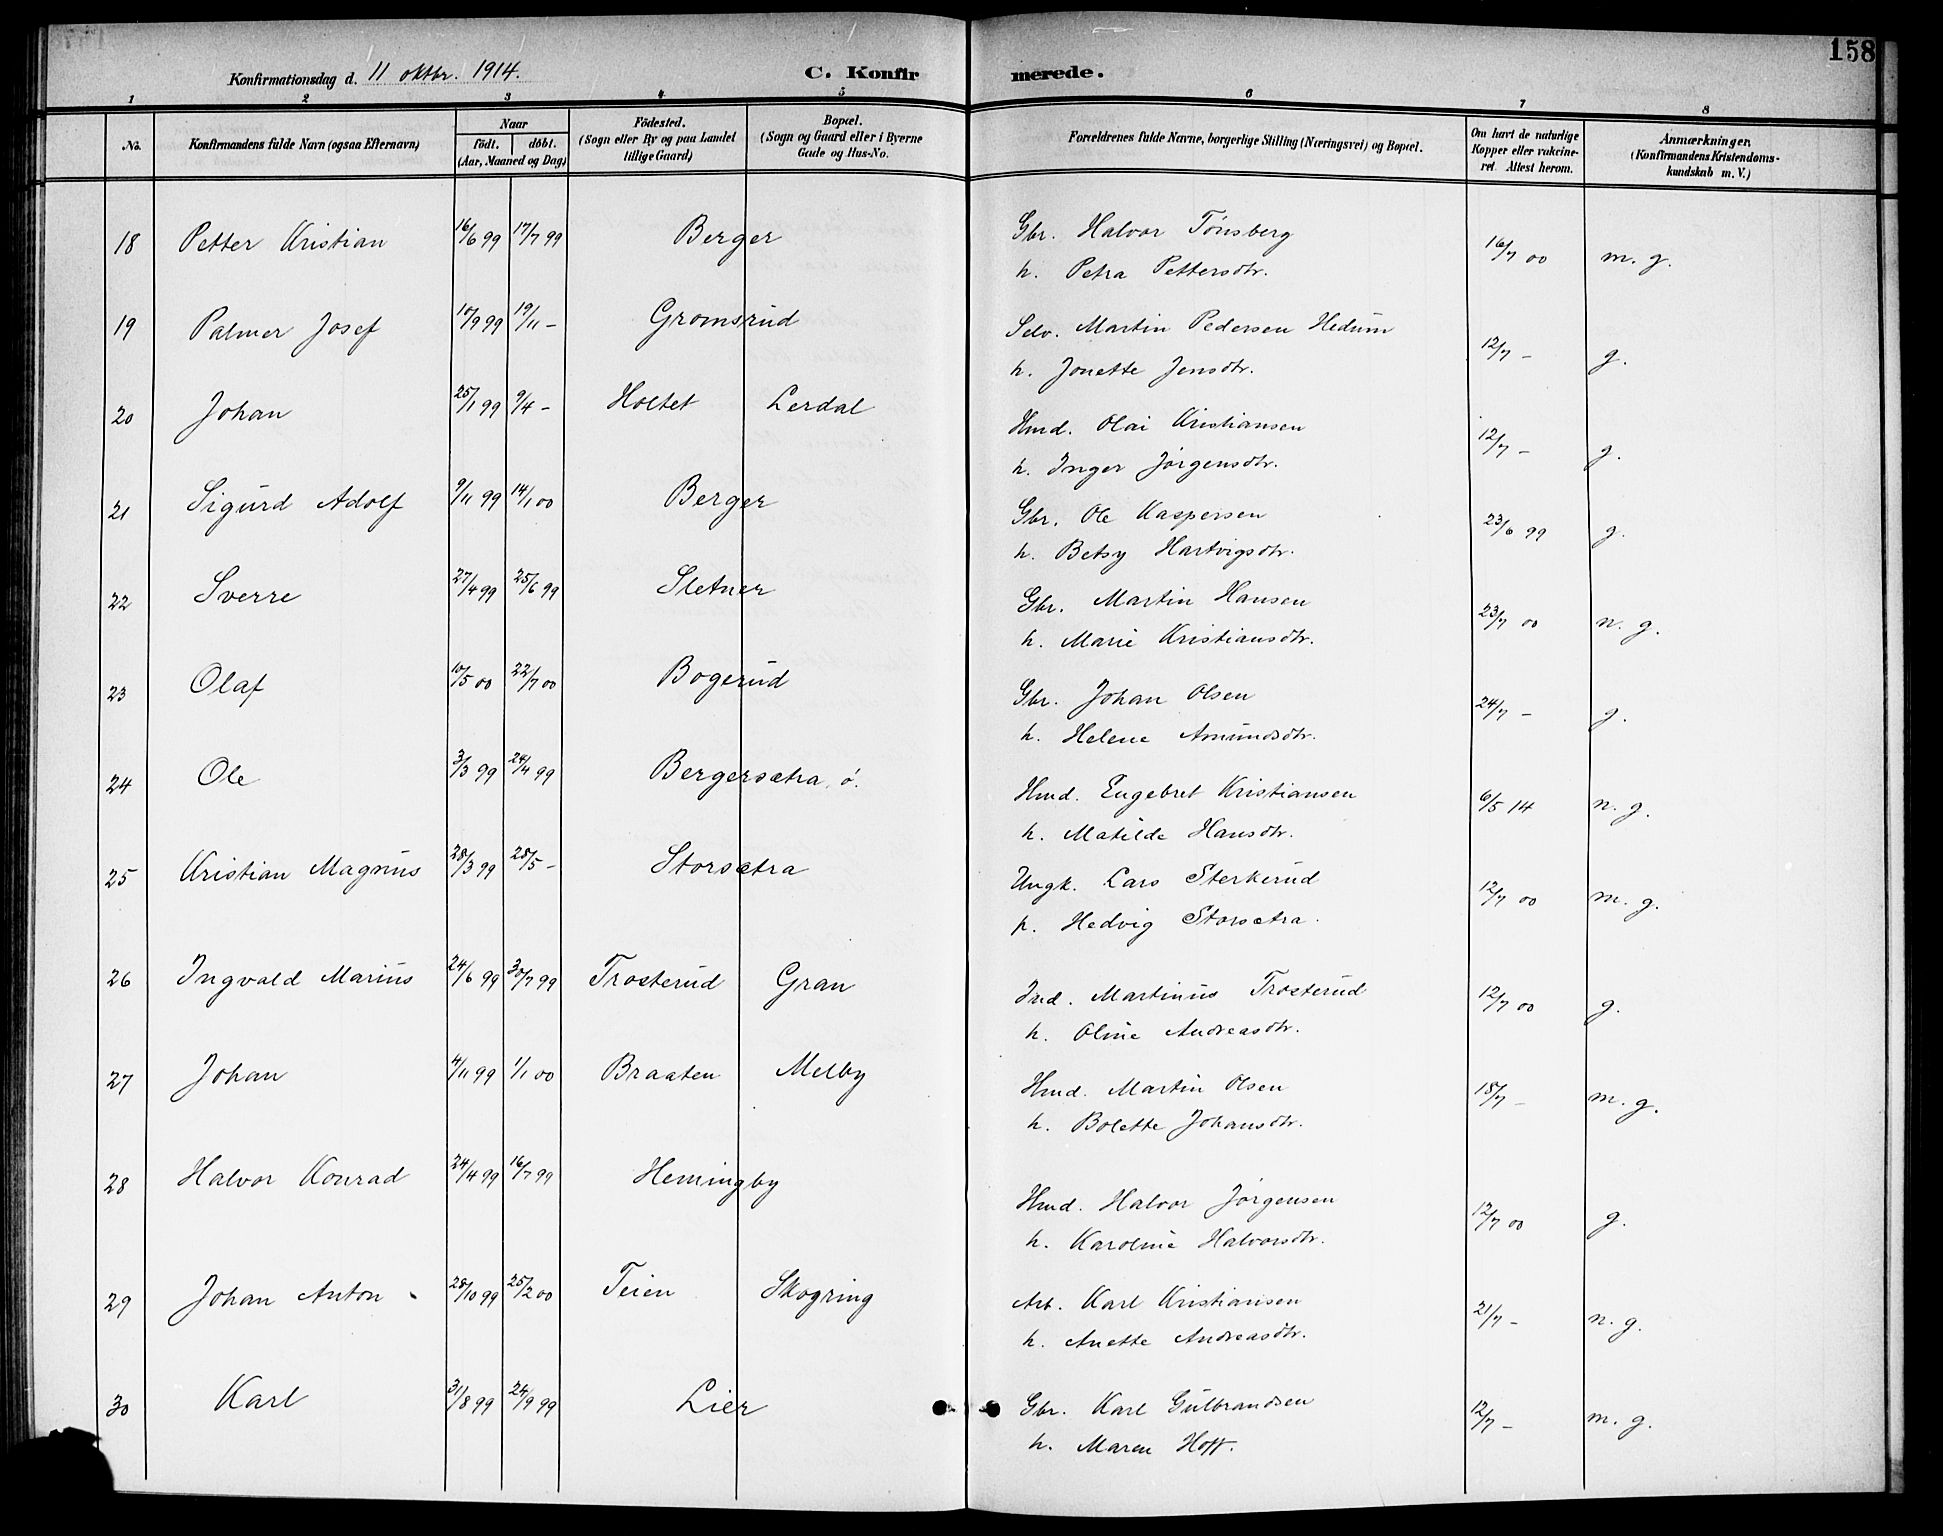 158
Konfirmationsdag d. 11 oktbr. 1914. C. Konfirmerede.
1 2 3 4 5 6 7 8
No. Konfirmandens fulde Navn (ogsaa Efternavn) Naar født. døbt. (Aar, Maaned og Dag) Fødested. (Sogn eller By og paa Landet tillige Gaard) Bopæl. (Sogn og Gaard eller i Byerne Gade og Hus-No. Forældrenes fulde Navne, borgerlige Stilling (Næringsvei) og Bopæl. Om havt de naturlige Kopper eller vakcineret. Attest herom. Anmærkninger. (Konfirmandens Kristendomskundskab m. V.)
18 Petter Kristian 16/6 99 17/7 99 Berger Gbr. Halvor Tønsberg 16/7 00 m. g.
h. Petra Pettersdtr.
19 Palmer Josef 10/9 99 19/11 - Gromsrud Selv. Martin Pedersen Hedum 12/7 - g.
h. Jonette Jensdtr.
20 Johan 25/1 99 9/4 - Holtet Lerdal Hmd. Olai Kristiansen 12/7 - g.
h. Inger Jørgensdtr.
21 Sigurd Adolf 9/11 99 14/1 00 Berger Gbr. Ole Kaspersen 23/6 99 g.
h. Betsy Hartvigsdtr.
22 Sverre 27/4 99 25/6 99 Sletner Gbr. Martin Hansen 23/7 00 n. g.
h. Marie Kristiansdtr.
23 Olaf 10/5 00 22/7 00 Bogerud Gbr. Johan Olsen 24/7 - g.
h. Helene Amundsdtr.
24 Ole 3/3 99 24/4 99 Bergersætra, ø. Hmd. Engebret Kristiansen 6/5 14 n. g.
h. Matilde Hansdtr.
25 Kristian Magnus 28/3 99 28/5 - Storsætra Ungk. Lars Sterkerud 12/7 00 m. g.
p. Hedvig Storsætra.
26 Ingvald Marius 24/6 99 30/7 99 Trosterud Gran Ind. Martinus Trosterud 12/7 00 g.
h. Oline Andreasdtr.
27 Johan 4/11 99 1/1 00 Braaten Melby Hmd. Martin Olsen 15/7 - m. g.
h. Bolette Johansdtr.
28 Halvor Konrad 24/4 99 16/7 99 Hemingby Hmd. Halvor Jørgensen 12/7 00 g.
h. Karoline Halvorsdtr.
29 Johan Anton 28/10 99 25/2 00 Teien Skogring Arb. Karl Kristiansen 21/7 - n. g.
h. Anette Andreasdtr.
30 Karl 31/8 99 24/9 99 Lier Gbr. Karl Gulbrandsen 12/7 - m. g.
h. Maren Hoff.